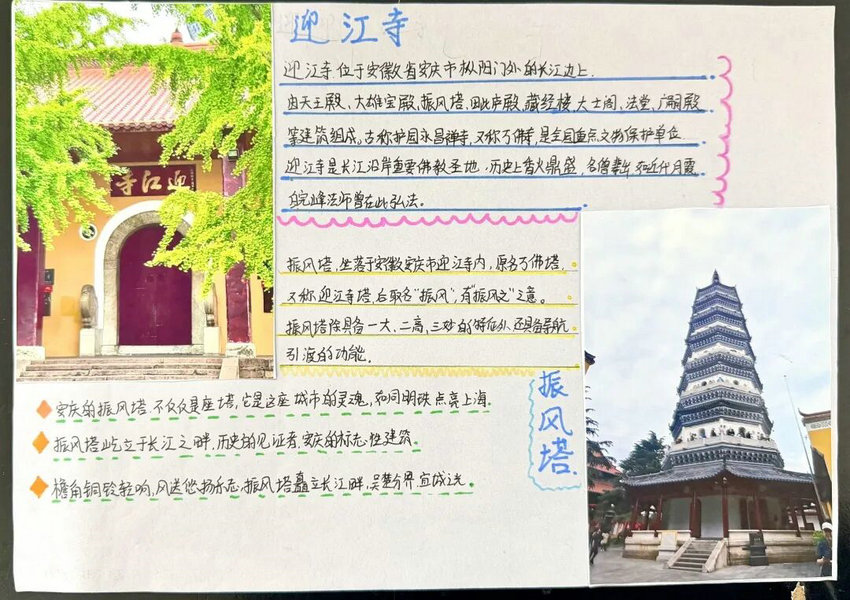 迎江寺
迎江寺
迎江寺位于安徽省安庆市枞阳门外的长江边上.
由天王殿、大雄宝殿、振风塔、毗卢殿、藏经楼、大士阁、法堂、广嗣殿
等建筑组成。古称护国永昌禅寺,又称万佛寺,是全国重点文物保护单位
迎江寺是长江沿岸重要佛教圣地,历史上香火鼎盛,名僧辈出 在近代月霞
皖峰法师曾在此弘法。
振风塔,坐落于安徽安庆市迎江寺内,原名万佛塔,
又称迎江寺塔,后取名“振风”,有“振风文”之意。
振风塔除具备一大、二高、三妙的特征外,还具备导航
引渡的功能.
安庆的振风塔,不仅仅是座塔,它是这座城市的灵魂,如同明珠点亮上海.
振风塔屹立于长江之畔,历史的见证者,安庆的标志性建筑.
檐角铜铃轻响,风送悠扬乐志,振风塔矗立长江畔,吴楚分界,宜城之光.
振风塔.